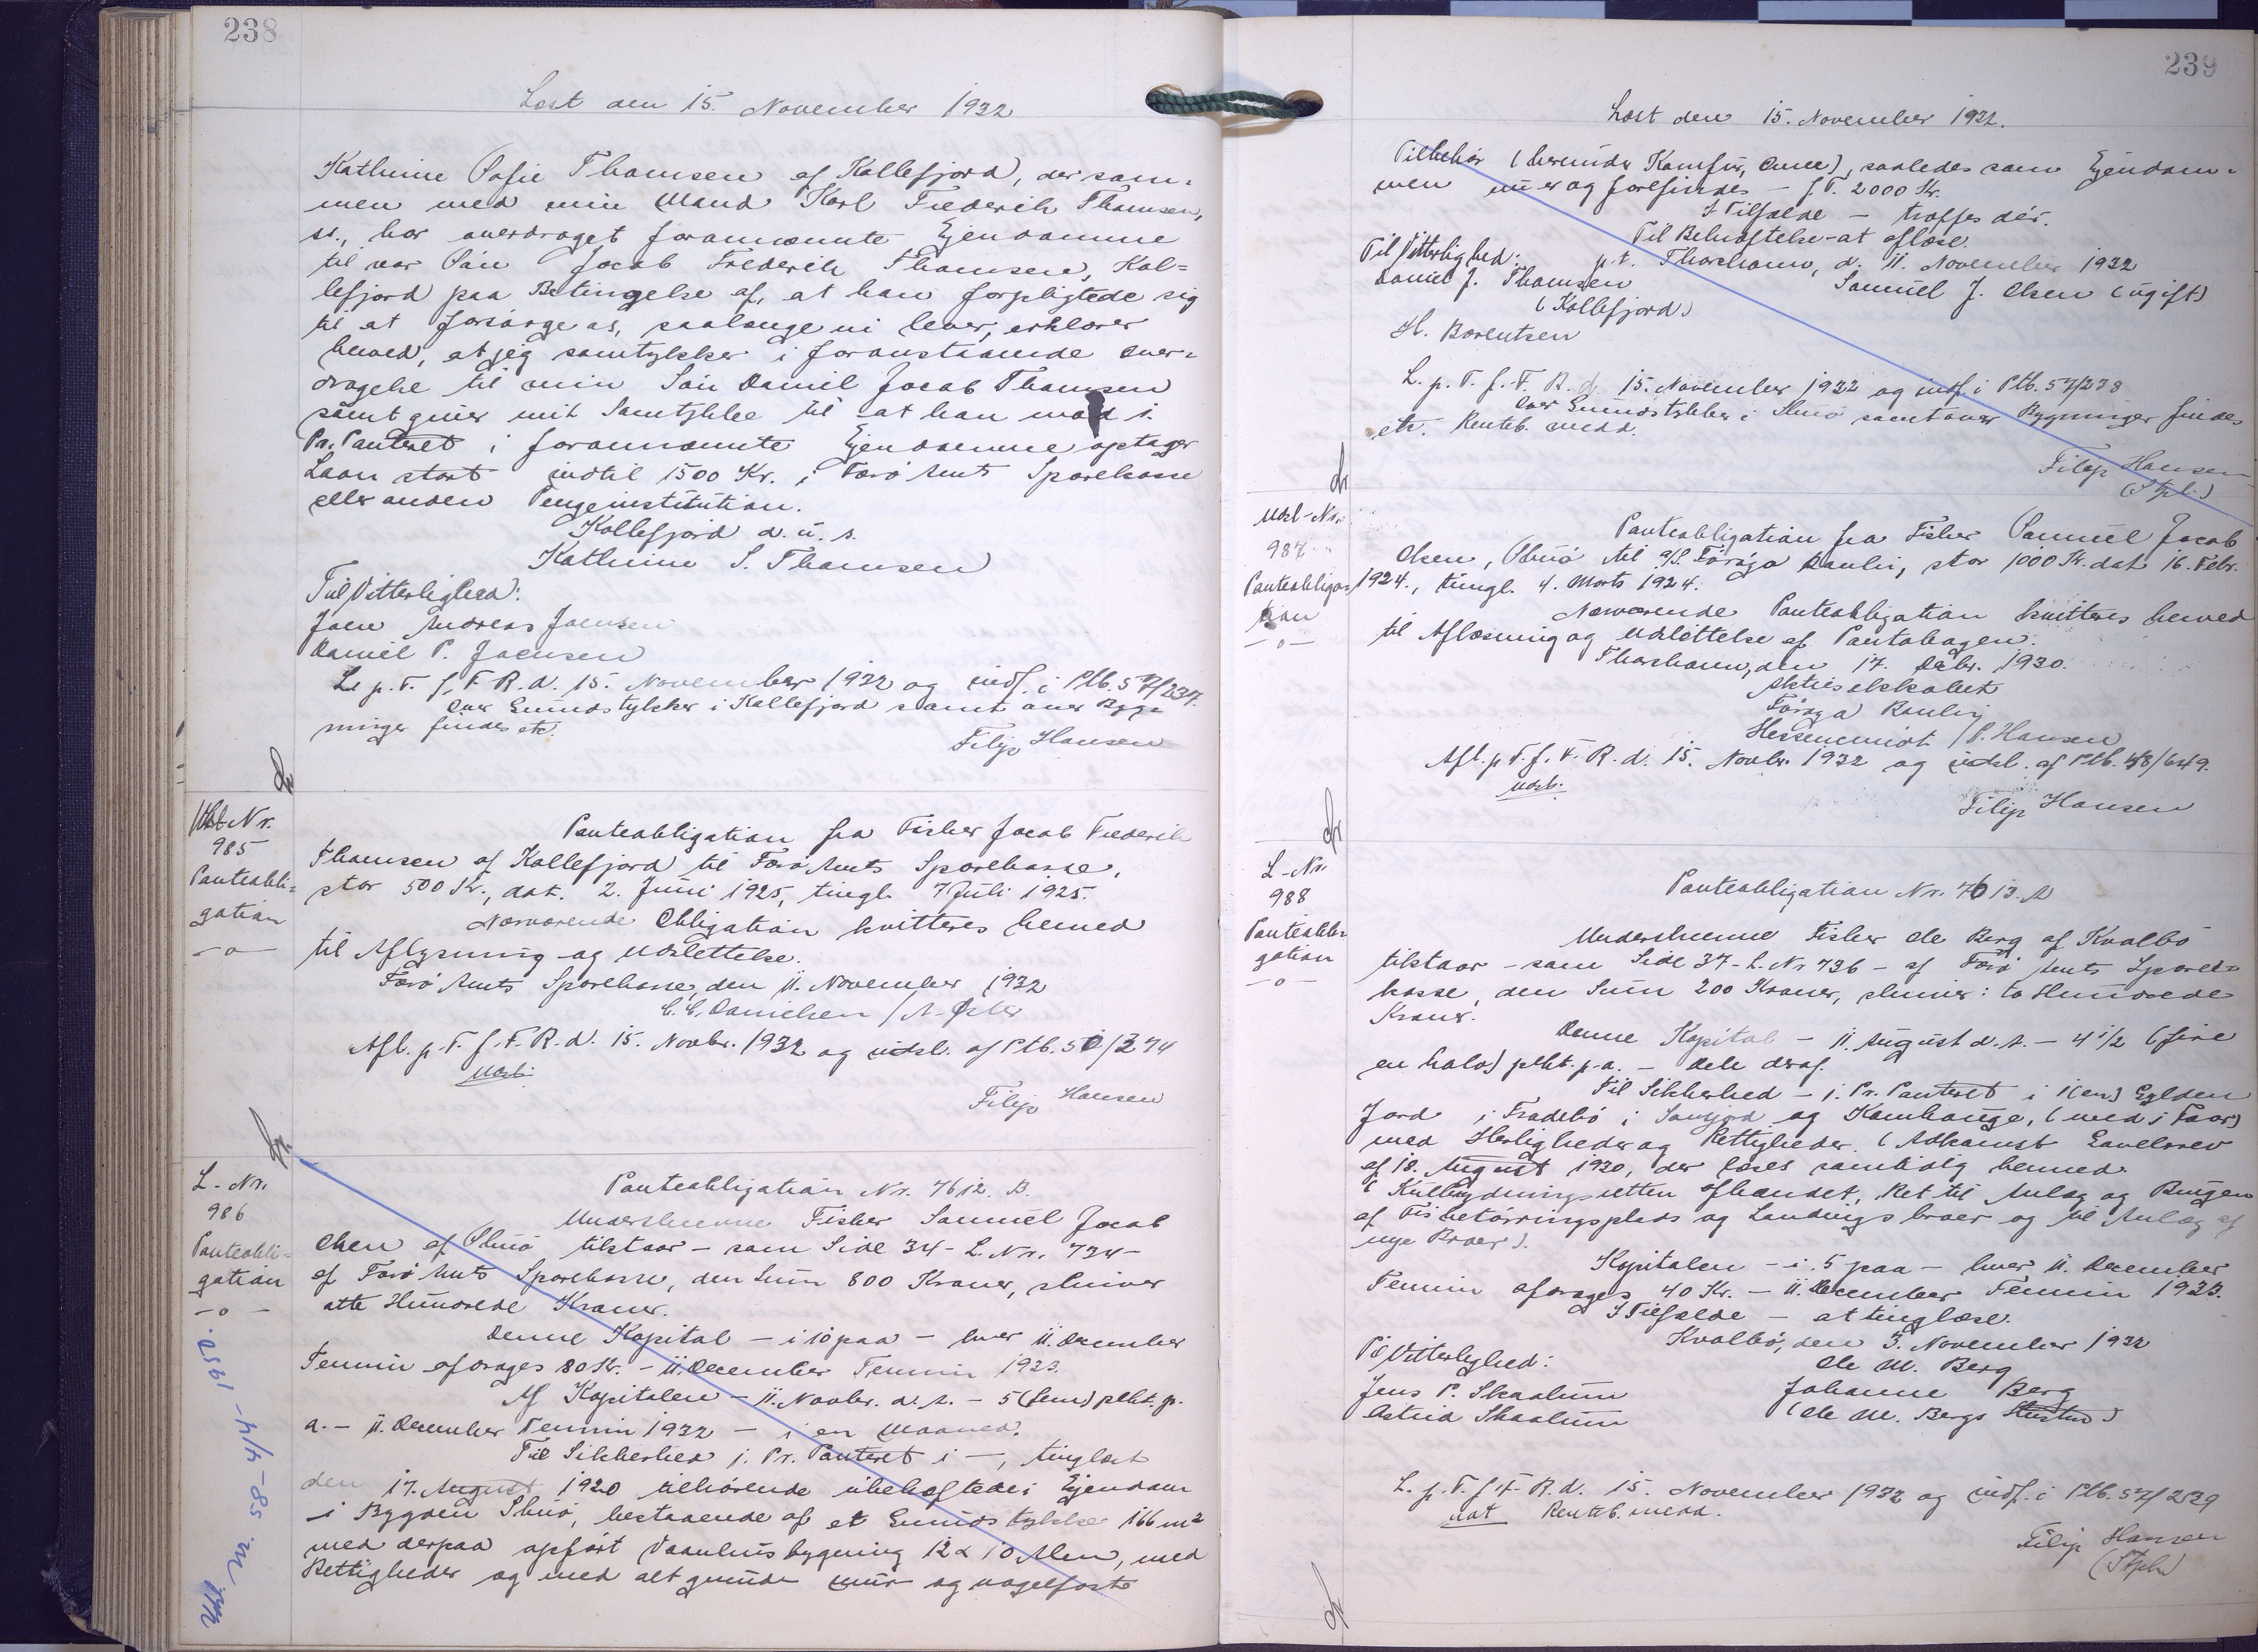 238
Læst den 15. November 1932
Kathrine Sofie Thomsen af Kollefjord, der sam=
men med min Mand Karl Frederik Thomsen,
ss., har overdraget forannævnte Ejendomme
til vor Søn Jacob Frederik Thomsen, Kol=
lefjord paa Betingelse af, at han forpligtede sig
til at forsørge os, saalænge vi lever, erklærer
herved, at jeg samtykker i foranstaaende Over=
dragelse til min Søn Daniel Jacob Thomsen
samt giver mit Samtykke til at han mod 1.
Pr. Panteret i forannævnte Ejendomme optager
Laan stort indtil 1500 Kr. i Færø Amts Sparekasse
eller anden Pengeinstitution.
Kollefjord d. u. s.
Kathrine S. Thomsen
Til Vitterlighed:
Joen Andreas Joensen
Daniel P. Joensen
L. p. T. f. F. R. d. 15. November 1932 og indf. i Ptb. 57/237.
Over Grundstykker i Kollefjord samt over Byg=
ninger findes etc.
Filip Hansen
Udsl-Nr.
985
Panteobli=
gation
-o-
Panteobligation fra Fisker Jacob Frederik
Thomsen af Kollefjord til Færø Amts Sparekasse,
stor 500 Kr., dat. 2. Juni 1925, tingl. 7 Juli 1925.
Nærværende Obligation kvitteres herved
til Aflysning og Udslettelse.
Færø Amts Sparekasse, den 11. November 1932
C. C. Danielsen /
Afl. p. T. f. F. R. d. 15. Novbr. 1932 og udsl. af Ptb. 50/374
Udsl.
Filip Hansen
L-Nr.
986
Panteobli-
gation
-o-
Panteobligation Nr. 7612. B.
Underskrevne Fisker Samuel Jacob
Olsen af Skuø tilstaar - som Side 34 - L. Nr. 734 -
af Færø Amts Sparekasse, den Sum 800 Kroner, skriver
otte Hundrede Kroner.
Denne Kapital - i 10 paa - hver 11. December
Termin afdrages 80 Kr. - 11. December Termin 1933.
Af Kapitalen - 11. Novbr. d. A. - 5 (fem) pCt. p.
a. - 11. December Termin 1932 - i en Maaned.
Til Sikkerhed 1. Pr. Panteret i -, tinglæst
den 17. August 1920 tilhørende ubehæftede: Ejendom
i Bygden Skuø, bestaaende af et Grundstykke 166 m²
med derpaa opført Vaaningsbygning 12 x 10 Alen, med
Rettigheder og med alt grund- mur- og nagelfaste
4/4-1950.
239
Læst den 15. November 1932.
Tilbehør (herunder Komfur, Ovne), saaledes som Ejendom=
men nu er og forefindes - f. T. 2000 Kr.
I Tilfælde - træffes dér.
Til Bekræftelse - at aflæse.
Til Vitterlighed: p. t. Thorshavn, d. 11. November 1932
Daniel J. Thomsen Samuel J. Olsen (ugift)
(Kollefjord)
H. Barentsen
L. p. T. f. F. R. d. 15. November 1932 og indf. i Ptb. 57/238
Over Grundstykker i Skuø samt over Bygninger findes
etc. Renteb. medd.
Filip Hansen
(Stpl.)
Udsl-Nr.
987
Panteobliga=
tion
-o-
Panteobligation fra Fisker Samuel Jacob
Olsen, Skuø til A/S. Føroya Banki, stor 1000 Kr. dat. 16. Febr.
1924., tingl. 4. Marts 1924.
Nærværende Panteobligation kvitteres herved
til Aflæsning og Udslettelse af Pantebogen.
Thorshavn, den 17. Debr. 1930.
Aktieselskabet
Føroya Banki
/ P. Hansen
Afl. p. T. f. F. R. d. 15. Novbr. 1932 og udsl. af Ptb. 48/649.
Udsl.
Filip Hansen
L-Nr.
988
Panteobli=
gation
-o-
Panteobligation Nr. 7613. A
Underskrevne Fisker Ole Berg af Kvalbø
tilstaar - som Side 37 - L. Nr 736 - af Færø Amts Spare=
kasse, den Sum 200 Kroner, skriver: to Hundrede
Kroner.
Denne Kapital - 11. August d. A. - 4 1/2 (fire
en halv) pCt. p. a. - dele deraf.
Til Sikkerhed - 1. Pr. Panteret i 1 (en) Gylden
Jord i Fradebø i og Kambhauge, (med i Faar)
med Herligheder og Rettigheder. (Adkomst Gavebrev
af 18. August 1930, der læses samtidig hermed.
( Kulbrydningsretten afhændet, Ret til Anlæg og Brugen
af Fisketørringsplads og Landingsbroer og til Anlæg af
nye Broer).
Kapitalen - i 5 paa - hver 11. December
Termin afdrages 40 Kr. - 11. December Termin 1933.
I Tilfælde - at tinglæse.
Kvalbø, den 3. November 1932
Til Vitterlighed: Ole M. Berg
Jens P. Skaalum Johanne Berg
Astrid Skaalum (Ole M. Bergs Hustru)
L. p. T. f. F. R. d. 15. November 1932 og indf. i Ptb. 57/239
Renteb. medd.
Filip Hansen
(Stpl.)